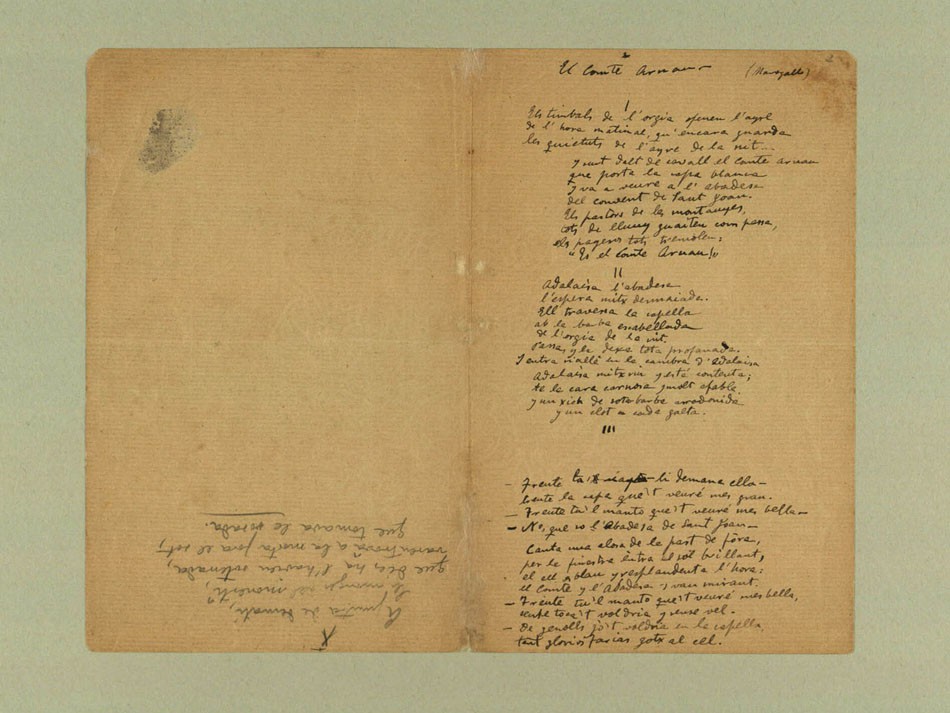 El Comte Arnau
(Maragall)
2
I
Els timbals de l'orgia omenen l'ayre
de l'hora matinal, qu'encara guarda
les quietuts de l'ayre de la nit...
Y surt dalt de cavall el Comte Arnau
que porta la capa blanca
y va a veure a l'abadesa
del convent de Sant Joan.
Els pastors de les montanyes,
tots de lluny guaiten com passa,
els pagesos tots tremolen:
"Es el Comte Arnau!"
II
Adalaisa l'abadesa
l'espera mitx desmaiada.
Ell travessa la capella
ab la barba
de l'orgia de la nit.
Passa y la dexa tota profanada.
Y entra allà en la cambra d'Adalaisa
Adalaisa mitx riu y está contenta;
té la cara carnosa y molt afable
y un xich de sotabarba arrodonida
y un clot a cada galta.
III
— Frente li demana ella —
trente la capa que't veuré mes gran.
— Frente tu'l manto que't veuré mes bella —
— No, que so l'Abadesa de Sant Joan —
Canta una alosa de la part de fòra,
per la finestra entra el sol brillant,
el cel es blau y resplandenta l'hora:
el Comte y l'Abadesa 's van mirant.
— Frente tu'l manto que't veuré mes bella,
sense toca't voldria y sense vel.
— De genolls jo't voldria en la capella
tant gloriós farias gotx al cel.
X
A punta de
la monja del monestir,
que deu, ha l'havien soterrada,
varen trovà a la morta fora el sot,
que tornava le